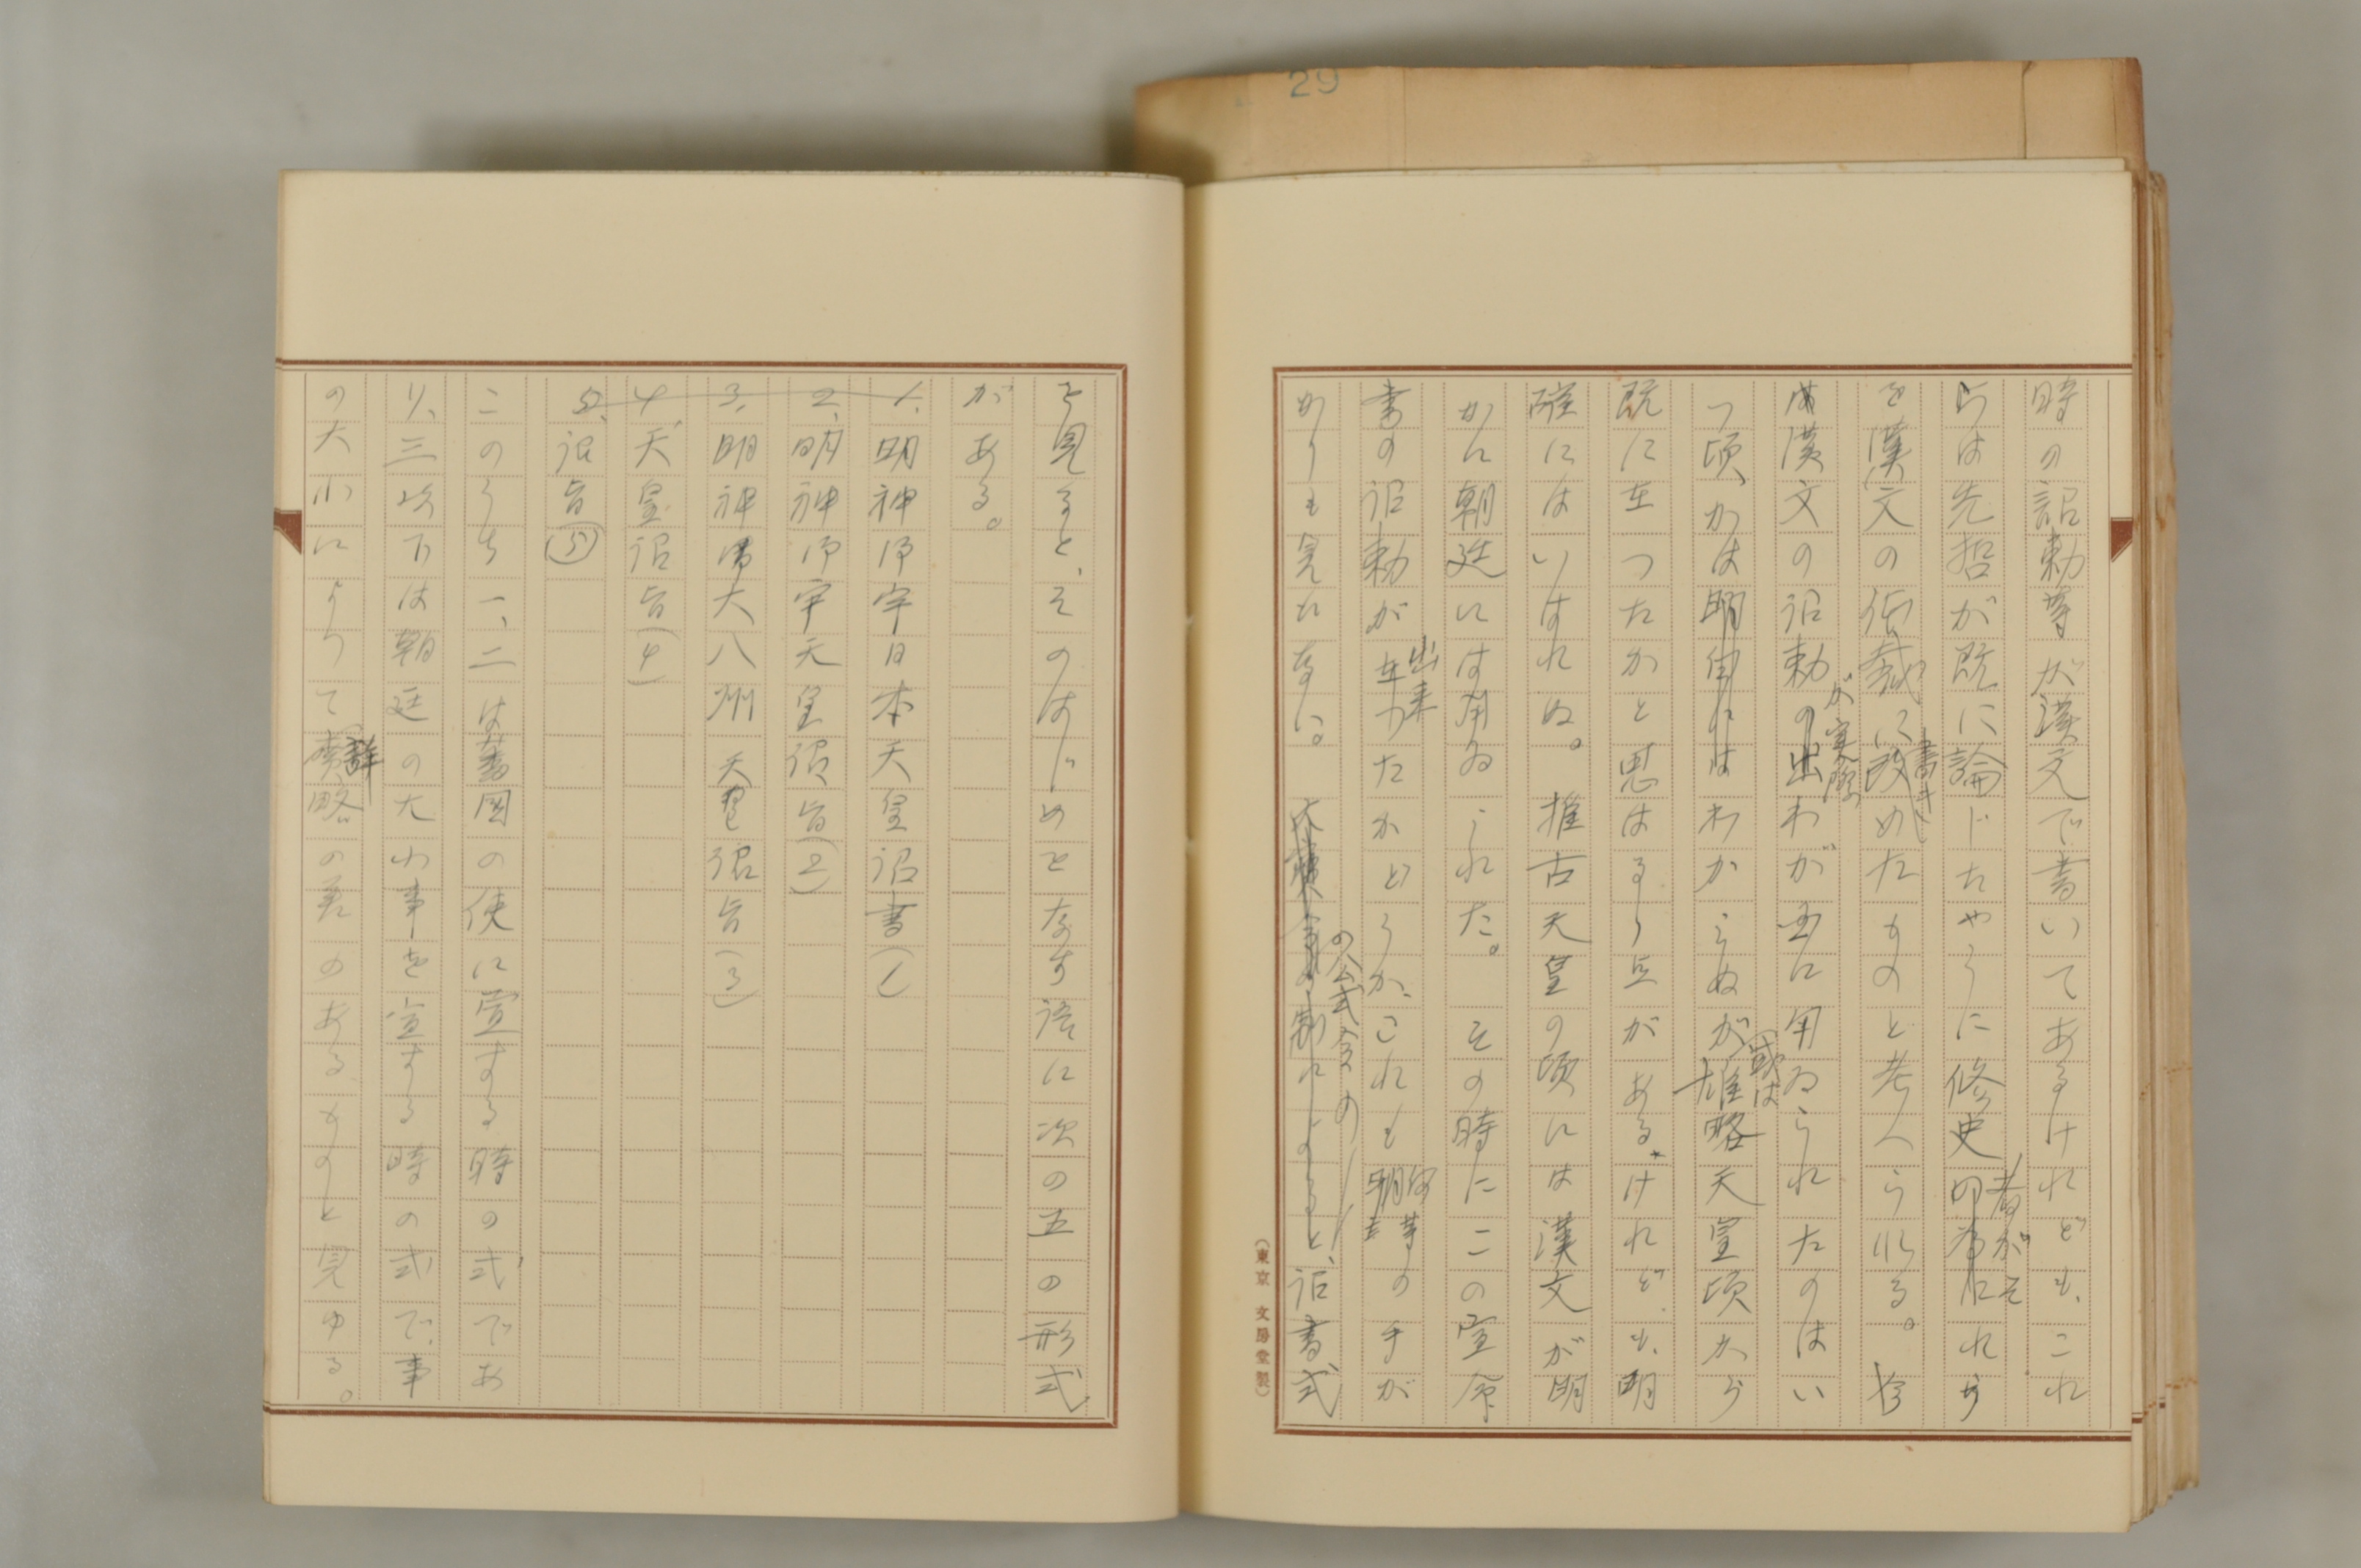 29
時の詔勅等が漢文で書いてあるけれども、これ
らは先哲が既に論じたやうに修史者がそれ
を漢文の体裁に書き改めたものと考へられる。
漢文の詔勅が実際わが国に用ゐられたのはい
つ頃かは わからぬが或は雄略天皇頃から
既に在つたかと思はるゝ点がある。けれども、明
確にはいはれぬ。推古天皇の頃には漢文が明
かに朝廷には用ゐられた。その時にこの宣命
書の詔勅が出来たかどうか、これも何等の手が
かりも見えない。 の公式令の詔書式
(東京 文房堂製)
を見ると、そのはじめとなす語に次の五の形式
がある。
1、明神御宇日本天皇詔書(1)
2、明神御宇天皇詔旨(2)
3、明神御大八州天皇詔旨(3)
4、天皇詔旨(4)
5、詔旨(5)
このうち一、二は蕃国の使に宣する時の式であ
り、三以下は朝廷の大小事を宣する時の式で、事
の大小によつて詳略の差のあるものと見ゆる。